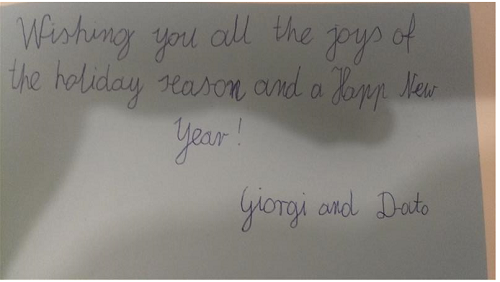 Wishing you all the joys of
the holiday season and a Happ New
Year!
Giorgi and Dato